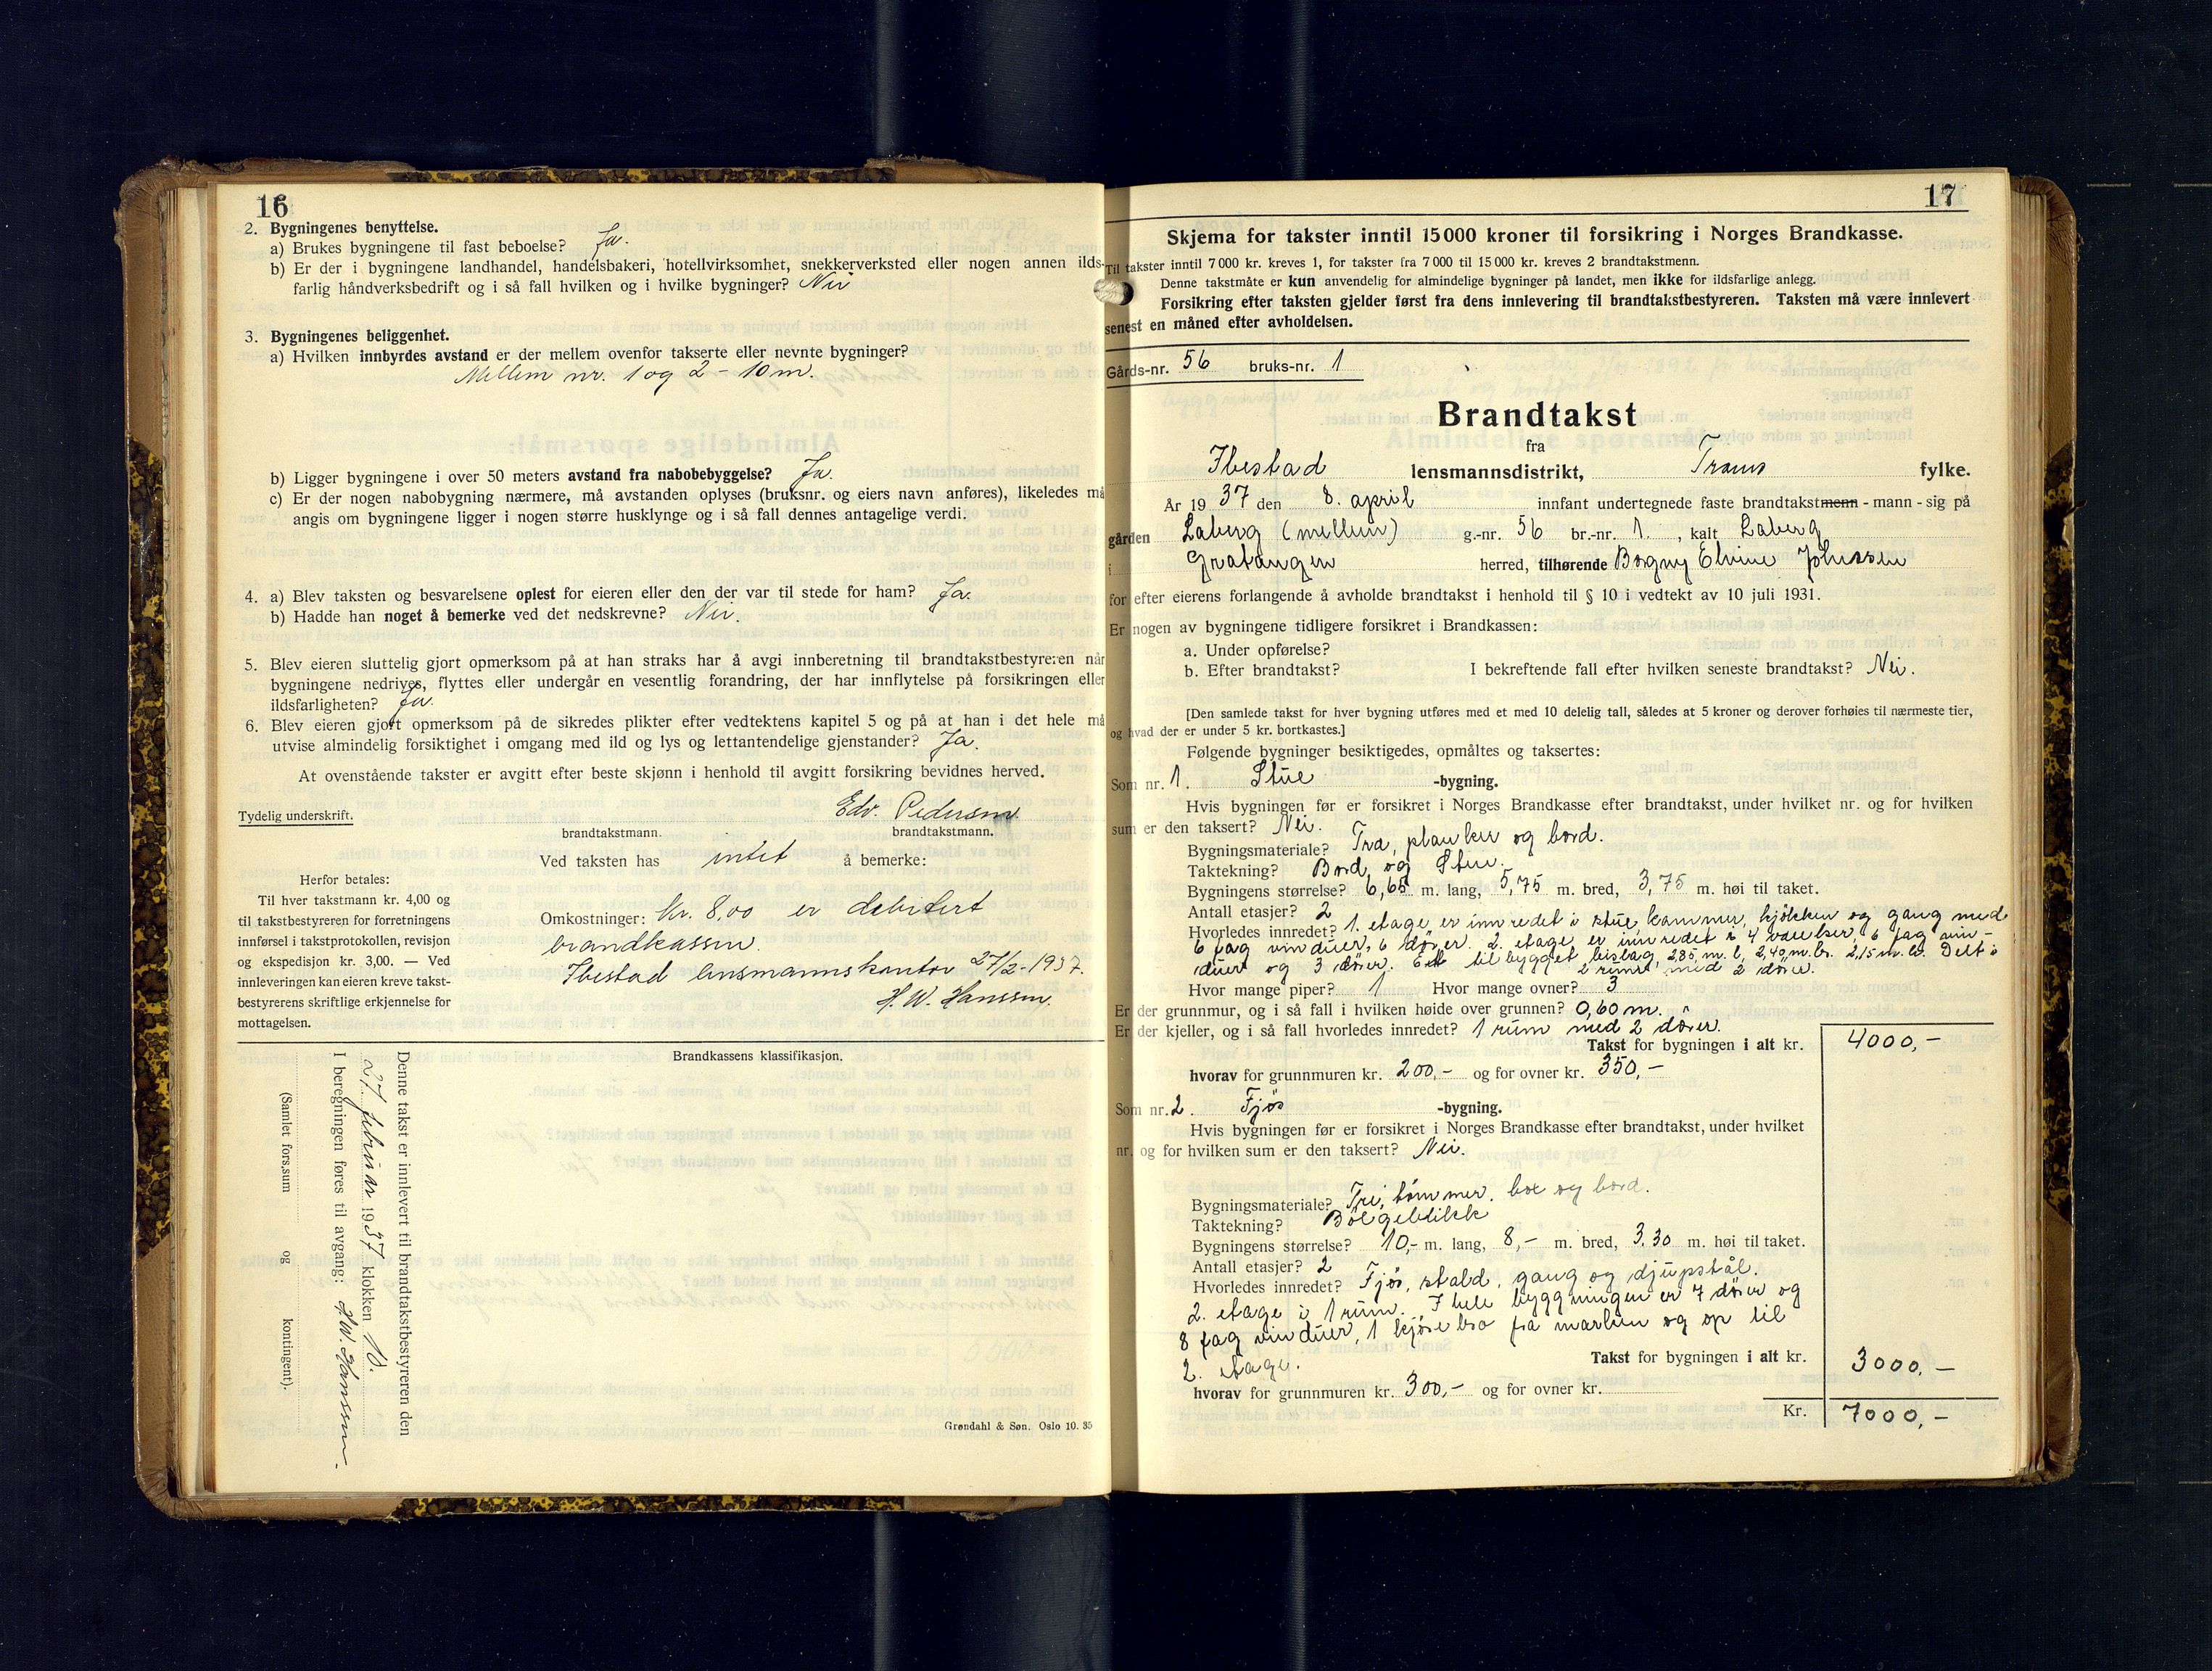 16
2. Bygningenes benyttelse.
a) Brukes bygningene til fast beboelse? Ja.
b) Er der i bygningene landhandel, handelsbakeri, hotellvirksomhet, snekkerverksted eller nogen annen ilds-
farlig håndverksbedrift og i så fall hvilken og i hvilke bygninger? Nei
3. Bygningenes beliggenhet.
a) Hvilken innbyrdes avstand er der mellem ovenfor takserte eller nevnte bygninger?
Mellem nr. 1 og 2 – 10 m.
b) Ligger bygningene i over 50 meters avstand fra nabobebyggelse? Ja.
c) Er der nogen nabobygning nærmere, må avstanden oplyses (bruksnr. og eiers navn anføres), likeledes må
angis om bygningene ligger i nogen større husklynge og i så fall dennes antagelige verdi.
4. a) Blev taksten og besvarelsene oplest for eieren eller den der var til stede for ham? Ja.
b) Hadde han noget å bemerke ved det nedskrevne? Nei.
5. Blev eieren sluttelig gjort opmerksom på at han straks har å avgi innberetning til brandtakstbestyreren når
bygningene nedrives, flyttes eller undergår en vesentlig forandring, der har innflytelse på forsikringen eller
ildsfarligheten? Ja.
6. Blev eieren gjort opmerksom på de sikredes plikter efter vedtektens kapitel 5 og på at han i det hele må
utvise almindelig forsiktighet i omgang med ild og lys og lettantendelige gjenstander? Ja.
At ovenstående takster er avgitt efter beste skjønn i henhold til avgitt forsikring bevidnes herved.
Tydelig underskrift.
Edv. Pedersen
brandtakstmann. brandtakstmann.
Ved taksten has intet å bemerke:
Herfor betales:
Til hver takstmann kr. 4,00 og
til takstbestyreren for forretningens
innførsel i takstprotokollen, revisjon
og ekspedisjon kr. 3,00. — Ved
innleveringen kan eieren kreve takst-
bestyrerens skriftlige erkjennelse for
mottagelsen.
Omkostninger: kr. 8,00 er debitert
brandkassen.
Ibestad lensmannskontor 27/2-1937.
H.W. Hanssen.
Brandkassens klassifikasjon.
Denne takst er innlevert til brandtakstbestyreren den
27. februar 1937 klokken 10.
I beregningen føres til avgang: H.W. Hanssen.
(Samlet fors.sum og kontingent).
Grøndahl & Søn. Oslo 10. 35
17
Skjema for takster inntil 15000 kroner til forsikring i Norges Brandkasse.
Til takster inntil 7 000 kr. kreves 1, for takster fra 7 000 til 15 000 kr. kreves 2 brandtakstmenn.
Denne takstmåte er kun anvendelig for almindelige bygninger på landet, men ikke for ildsfarlige anlegg.
Forsikring efter taksten gjelder først fra dens innlevering til brandtakstbestyreren. Taksten må være innlevert
senest en måned efter avholdelsen.
Gårds-nr. 56 bruks-nr. 1
Brandtakst
fra
Ibestad lensmannsdistrikt, Troms fylke.
År 1937 den 8. april innfant undertegnede faste brandtakstmenn - mann - sig på
gården Laberg (mellem) g.-nr. 56 br.-nr. 1. , kalt Laberg
i Gratangen herred, tilhørende Borgny Elvine Johnssen
for efter eierens forlangende å avholde brandtakst i henhold til § 10 i vedtekt av 10 juli 1931.
Er nogen av bygningene tidligere forsikret i Brandkassen:
a. Under opførelse?
b. Efter brandtakst? I bekreftende fall efter hvilken seneste brandtakst? Nei.
[Den samlede takst for hver bygning utføres med et med 10 delelig tall, således at 5 kroner og derover forhøies til nærmeste tier,
og hvad der er under 5 kr. bortkastes.]
Følgende bygninger besiktigedes, opmåltes og taksertes:
Som nr. 1. Stue -bygning.
Hvis bygningen før er forsikret i Norges Brandkasse efter brandtakst, under hvilket nr. og for hvilken
sum er den taksert? Nei.
Bygningsmateriale? Træ, planker og bord.
Taktekning? Bord og Sten.
Bygningens størrelse? 6,65 m. lang, 5,75 m. bred, 3,75 m. høi til taket.
Antall etasjer? 2
Hvorledes innredet? 1. etage er innredet i stue, kammer, kjøkken og gang med
6 fag vinduer, 6 dører. 2. etage er innredet i 4 værelser, 6 fag vin-
duer og 3 dører. Ett tilbygget bislag, 2,85 m. l. 2,40 m. br. 2,15 m. h. Delt i
2 rum med 2 dører.
Hvor mange piper? 1 Hvor mange ovner? 3
Er der grunnmur, og i så fall i hvilken høide over grunnen? 0,60 m.
Er der kjeller, og i så fall hvorledes innredet? 1 rum med 2 dører.
Takst for bygningen i alt kr. 4000,–
hvorav for grunnmuren kr. 200,– og for ovner kr. 350,–
Som nr. 2. Fjøs -bygning.
Hvis bygningen før er forsikret i Norges Brandkasse efter brandtakst, under hvilket
nr. og for hvilken sum er den taksert? Nei.
Bygningsmateriale? Tre, tømmer. og bord.
Taktekning? Bølgeblikk
Bygningens størrelse? 10,– m. lang, 8,– m. bred, 3.30 m. høi til taket.
Antall etasjer? 2
Hvorledes innredet? Fjøs, stald, gang og djupstål.
2. etage i 1 rum. I hele byggningen er 7 dører og
8 fag vinduer, 1 kjørebro fra marken og op til
2. etage.
Takst for bygningen i alt kr. 3000,–
hvorav for grunnmuren kr. 300,– og for ovner kr.
Kr. 7000,–